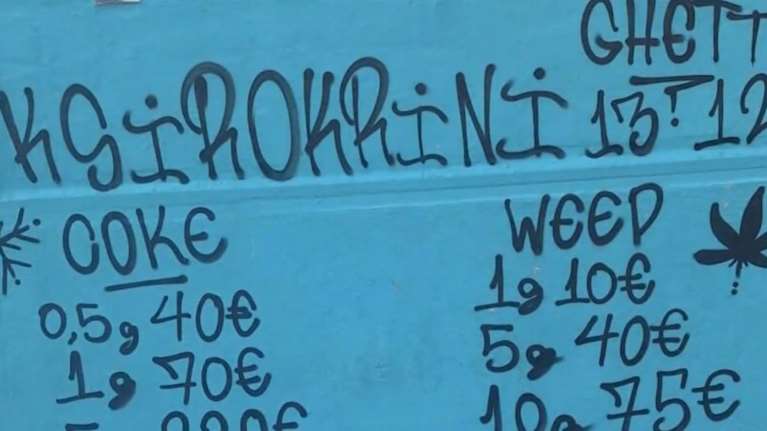 GHETT
KSIROKRINI 13T12
COKE
0,5g 40€
1g 70€
WEED
1g 10€
5g 40€
10g 75€